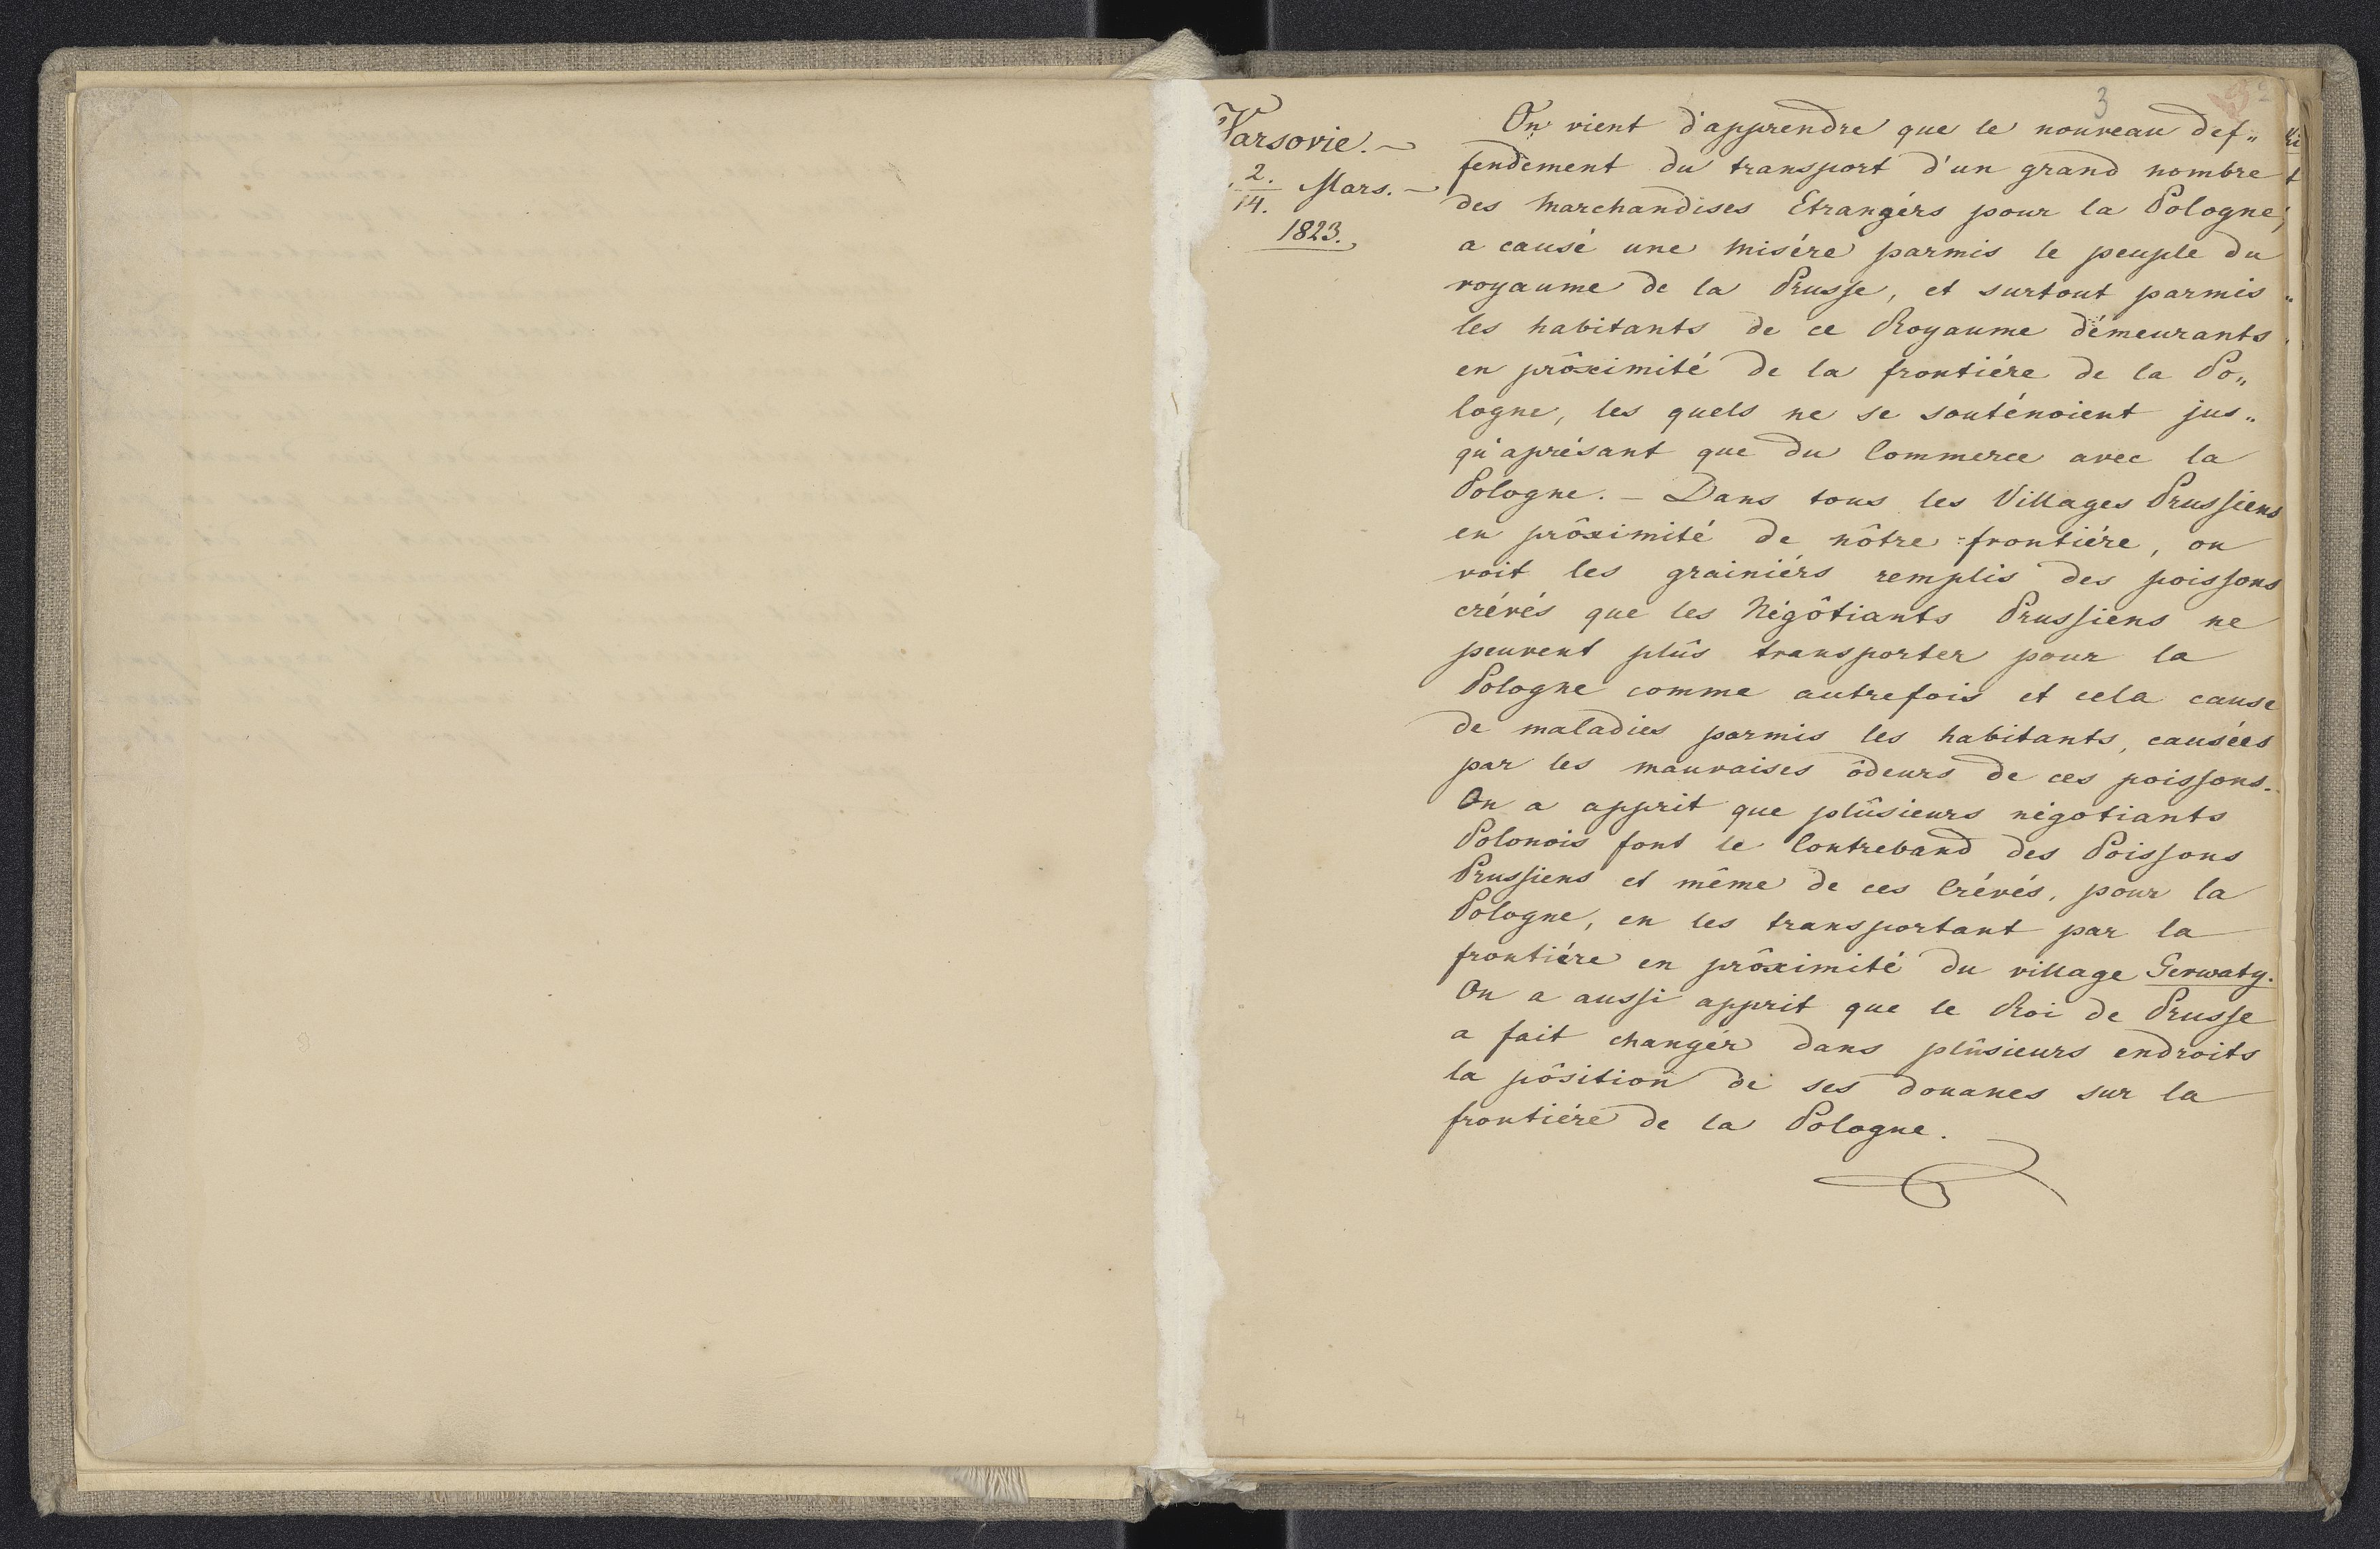 3
Varsovie.
2. Mars.
14.
1823.
On vient d'apprendre que le nouveau def„
fendement du transport d'un grand nombre
des marchandises Etrangérs pour la Pologne,
a causé une misére parmis le peuple du
royaume de la Prusse, et surtout parmis
les habitants de ce Royaume démeurants
en prôximité de la frontiére de la Po„
logne, les quels ne se souténoient jus„
qu'aprésant que du Commerce avec la
Pologne. — Dans tous les Villages Prussiens
en prôximité de nôtre frontiére, on
voit les grainiérs remplis des poissons
crévés que les Négôtiants Prussiens ne
peuvent plûs transporter pour la
Pologne comme autrefois et cela cause
de maladies parmis les habitants, causées
par les mauvaises ôdeurs de ces poissons.
On a apprit que plûsieurs négotiants
Polonois font le Contreband des Poissons
Prussiens et même de ces Crévés, pour la
Pologne, en les transportant par la
frontiére en prôximité du village Gerwaty.
On a aussi apprit que le Roi de Prusse
a fait changér dans plûsieurs endroits
la pôsition de ses douanes sur la
frontiére de la Pologne.
4